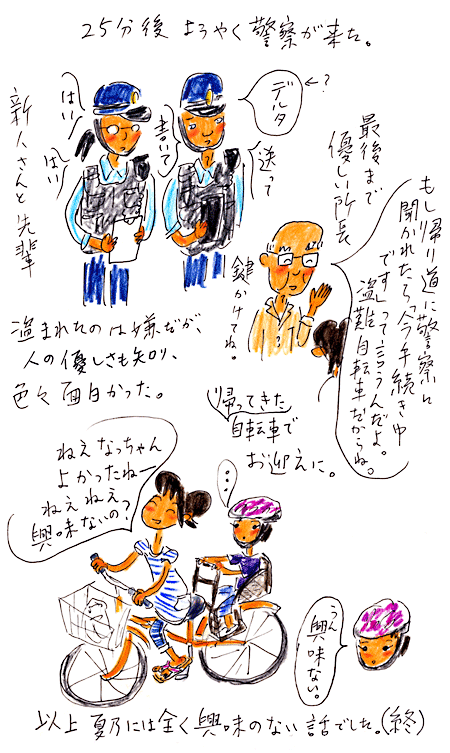 25分後 ようやく警察が来た。
新人さんと先輩
はい!
はい
書いて
送って
デルタ
←?
最後まで
優しい所長
もし帰り道に警察に
聞かれたら「今手続き中
です」って言うんだよ。
盗難自転車だからね。
鍵かけてね。
盗まれたのは嫌だが、
人の優しさも知り、
色々面白かった。
帰ってきた
自転車で
お迎えに。
ねえなっちゃん
よかったねー
ねえねえ
興味ないの?
…
うん
興味ない。
以上 夏乃には全く興味のない話でした。(終)